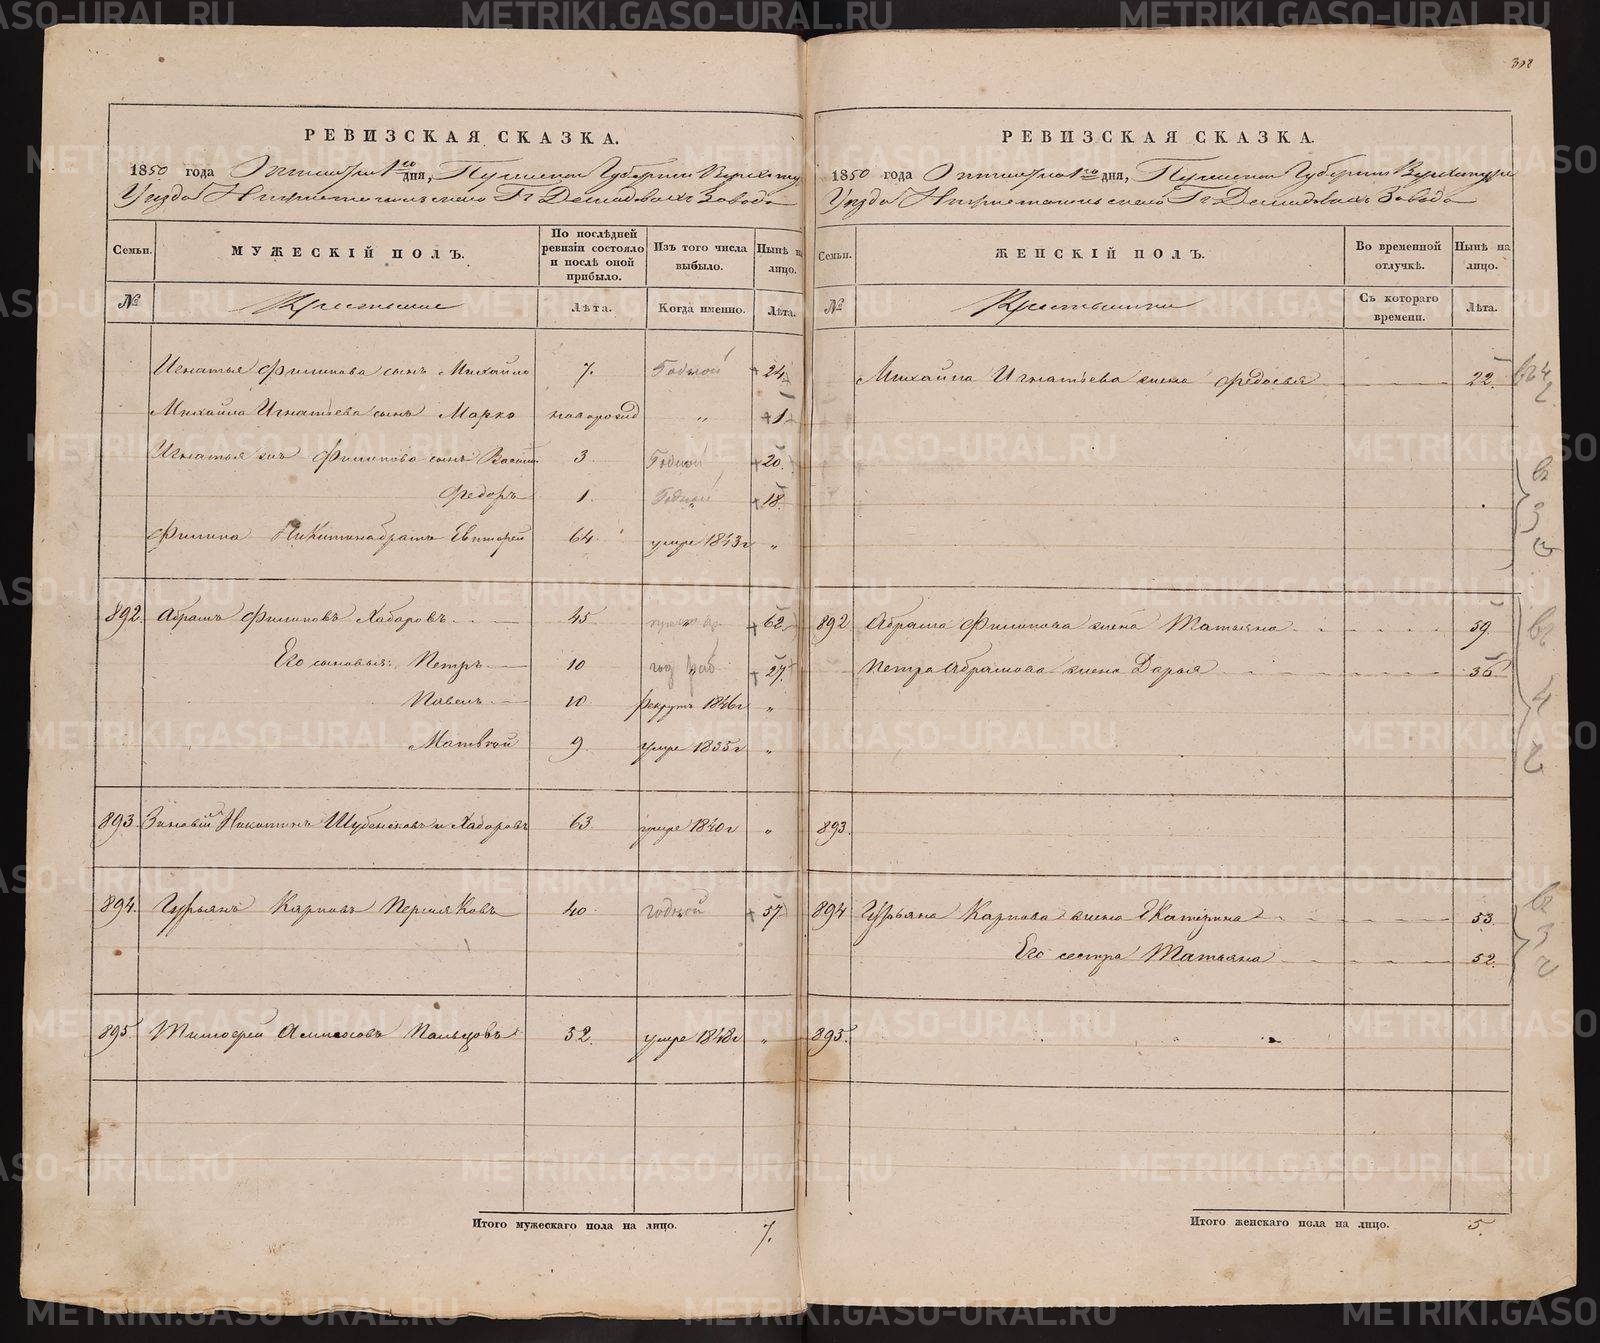 308
РЕВИЗСКАЯ СКАЗКА.
1850 года Октября 1го дня, Пермской Губернии Верхотур
Уезда Нижнетагильского Гг Демидовых Завода
Семьи.
МУЖЕСКІЙ ПОЛЪ.
По послѣдней ревизіи состояло и послѣ оной прибыло.
Изъ того числа выбыло.
Нынѣ на лицо.
№
Крестьяне
Лѣта.
Когда именно.
Лѣта.
Игнатья Филипова сынъ Михайло 7. Годной 24
Михайла Игнатьева сынъ Марко новорожд " 1
Игнатья же Филипова сынъ Василий 3 Годной 20.
Федоръ 1. Годной 18.
Филипа Никитина братъ Евтифей 64 умре 1843г "
892. Абрамъ Филиповъ Хабаровъ 45 62.
Его сыновья: Петръ 10 год раб 27.
Павелъ 10 рекрутъ 1846г "
Матвей 9 умре 1835г "
893. Зиновій Никитинъ Шубенковъ и Хабаровъ 63 умре 1840г "
894. Гурьянъ Карповъ Перияковъ 40 годной 57
895. Тимофей Пальцовъ 32. умре 1848г "
Итого мужескаго пола на лицо. 7.
РЕВИЗСКАЯ СКАЗКА.
1850 года Октября 1го дня, Пермской Губернии Верхотур
Уезда Нижнетагильского Гг Демидовых Завода
Семьи.
ЖЕНСКІЙ ПОЛЪ.
Во временной отлучкѣ.
Нынѣ на лицо.
№
Крестьянки
Съ котораго времени.
Лѣта.
Михайла Игнатьева жена Федосья 22.
892 Абрама Филипова жена Татьяна 59.
Петра Абрамова жена Дарья 36
893.
894 Гурьяна Карпова жена Екатерина 53.
Его сестра Татьяна 52.
895.
Итого женскаго пола на лицо. 5.
METRIKI.GASO-URAL.RU